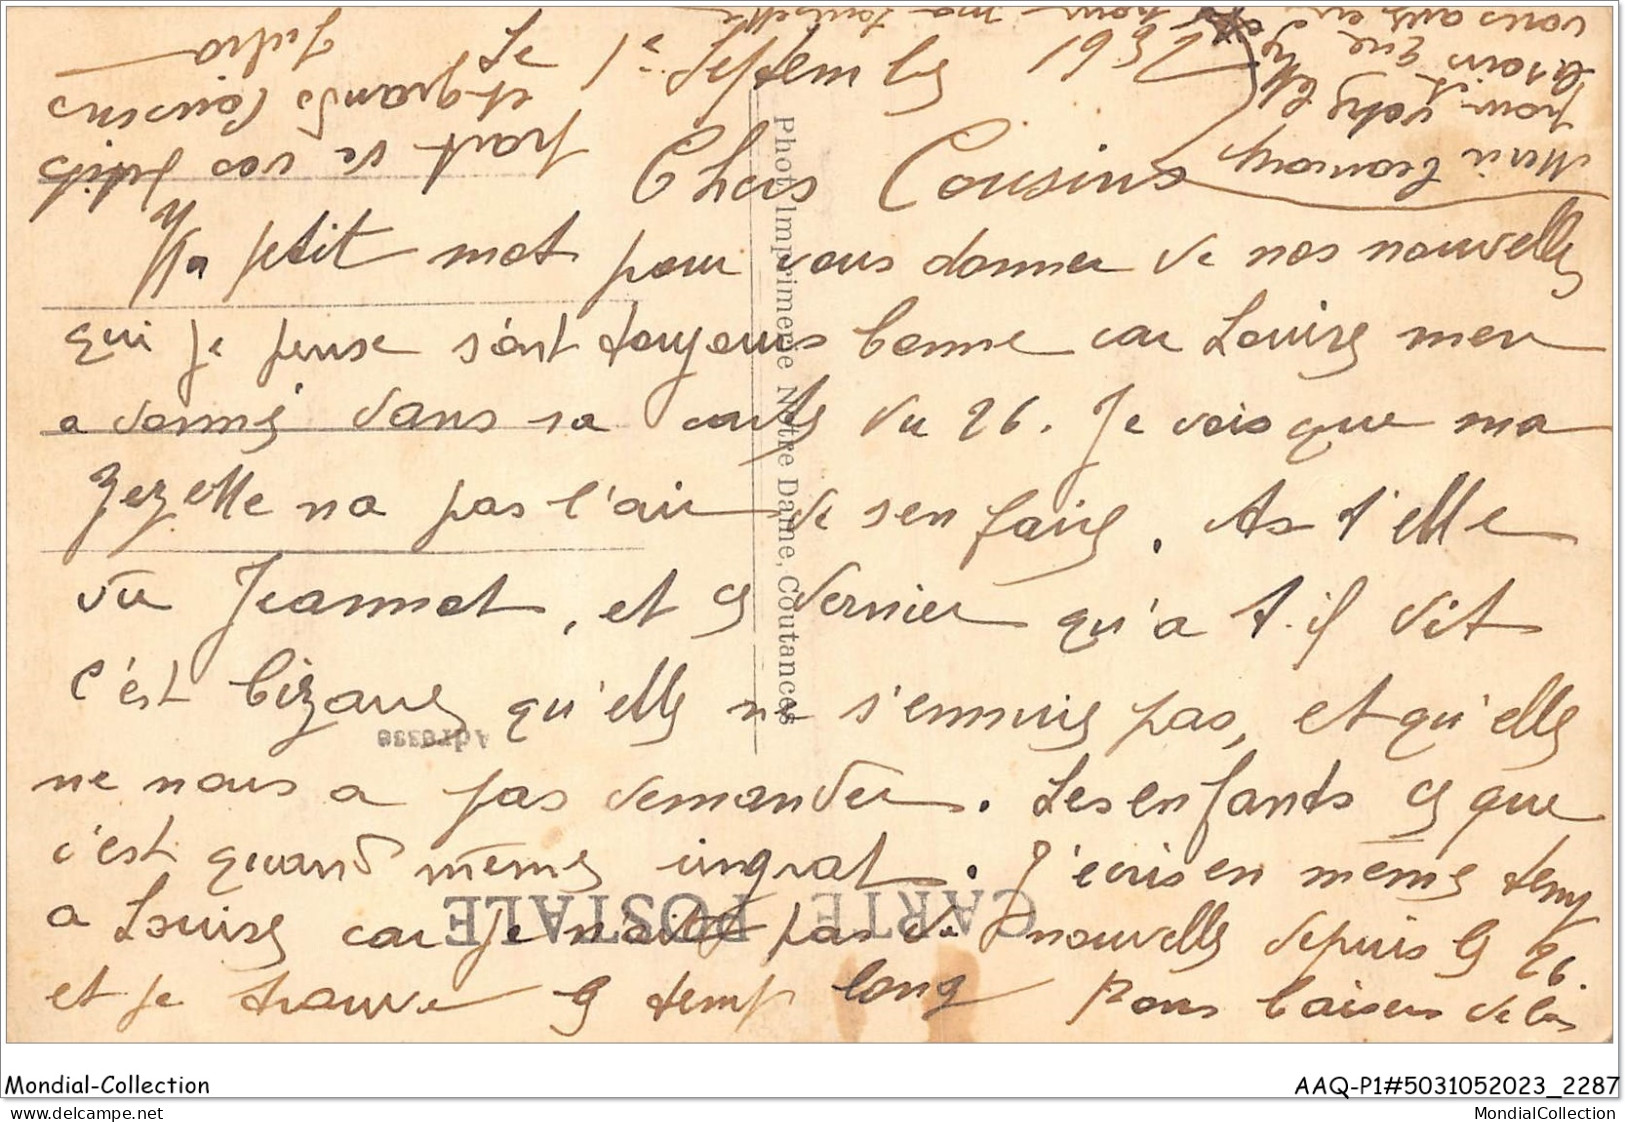 Le 1er Septembre 1937
Chers Cousins
Un petit mot pour vous donner de nos nouvelles
qui je pense sont toujours bonne car Louise men
a donné dans sa carte du 26. Je vois que ma
Zezette na pas l'air de sen faire. As t'elle
vu Jeannot, et ce dernier qu'a t-il dit
c'est bizarre qu'elle ne s'ennuie pas, et qu'elle
ne nous a pas demander. Les enfants ce que
c'est quand même ingrat. J'écris en même temp
a Louise car je n'ai pas de nouvelle depuis le 26.
et je trouve le temp long Bons baisers de la
part de vos petits
et grands Cousins
Julia
Merci beaucoup
pour votre
vous aurez pour ma
Phot. Imprimerie Notre Dame, Coutances
Adresse
CARTE POSTALE
Mondial-Collection
AAQ-P1#5031052023_2287
www.delcampe.net
MondialCollection